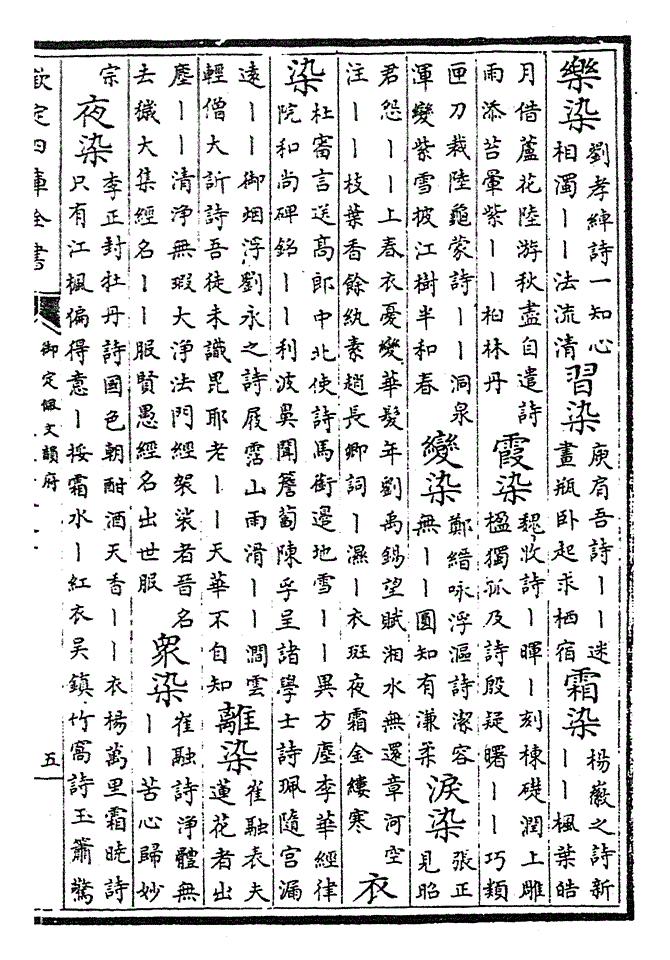 樂染
劉孝綽詩一知心
相濁丨丨法流清
習染
庾肩吾詩丨丨迷
畫瓶卧起求栖宿
霜染
楊徽之詩新
丨丨楓葉皓
月借蘆花陸游秋盡自遣詩
雨添苔暈紫丨丨桕林丹
霞染
魏收詩丨暉丨刻棟礎潤上雕
楹獨孤及詩殷疑曙丨丨巧類
匣刀裁陸龜蒙詩丨丨洞泉
渾變紫雪披江樹半和春
變染
鄭縉咏浮漚詩潔容
無丨丨圓知有謙柔
淚染
張正
見昭
君怨丨丨上春衣憂變華髮年劉禹錫望賦湘水無還章河空
注丨丨枝葉香餘紈素趙長卿詞丨濕丨衣斑夜霜金縷寒
衣
染
杜審言送高郎中北使詩馬銜邊地雪丨丨異方塵李華經律
院和尚碑銘丨丨利波異聞簷蔔陳孚呈諸學士詩珮隨宫漏
遠丨丨御烟浮劉永之詩屐霑山雨滑丨丨澗雲
輕僧大訢詩吾徒未識毘耶老丨丨天華不自知
離染
崔融表夫
蓮花者出
塵丨丨清浄無瑕大浄法門經袈裟者晉名
去穢大集經名丨丨服賢愚經名出世服
衆染
崔融詩浄體無
丨丨苦心歸妙
宗
夜染
李正封牡丹詩國色朝酣酒天香丨丨衣楊萬里霜曉詩
只有江楓偏得意丨挼霜水丨紅衣吴鎮竹窩詩玉簫驚
欽定四庫全書
御定佩文韻府
五